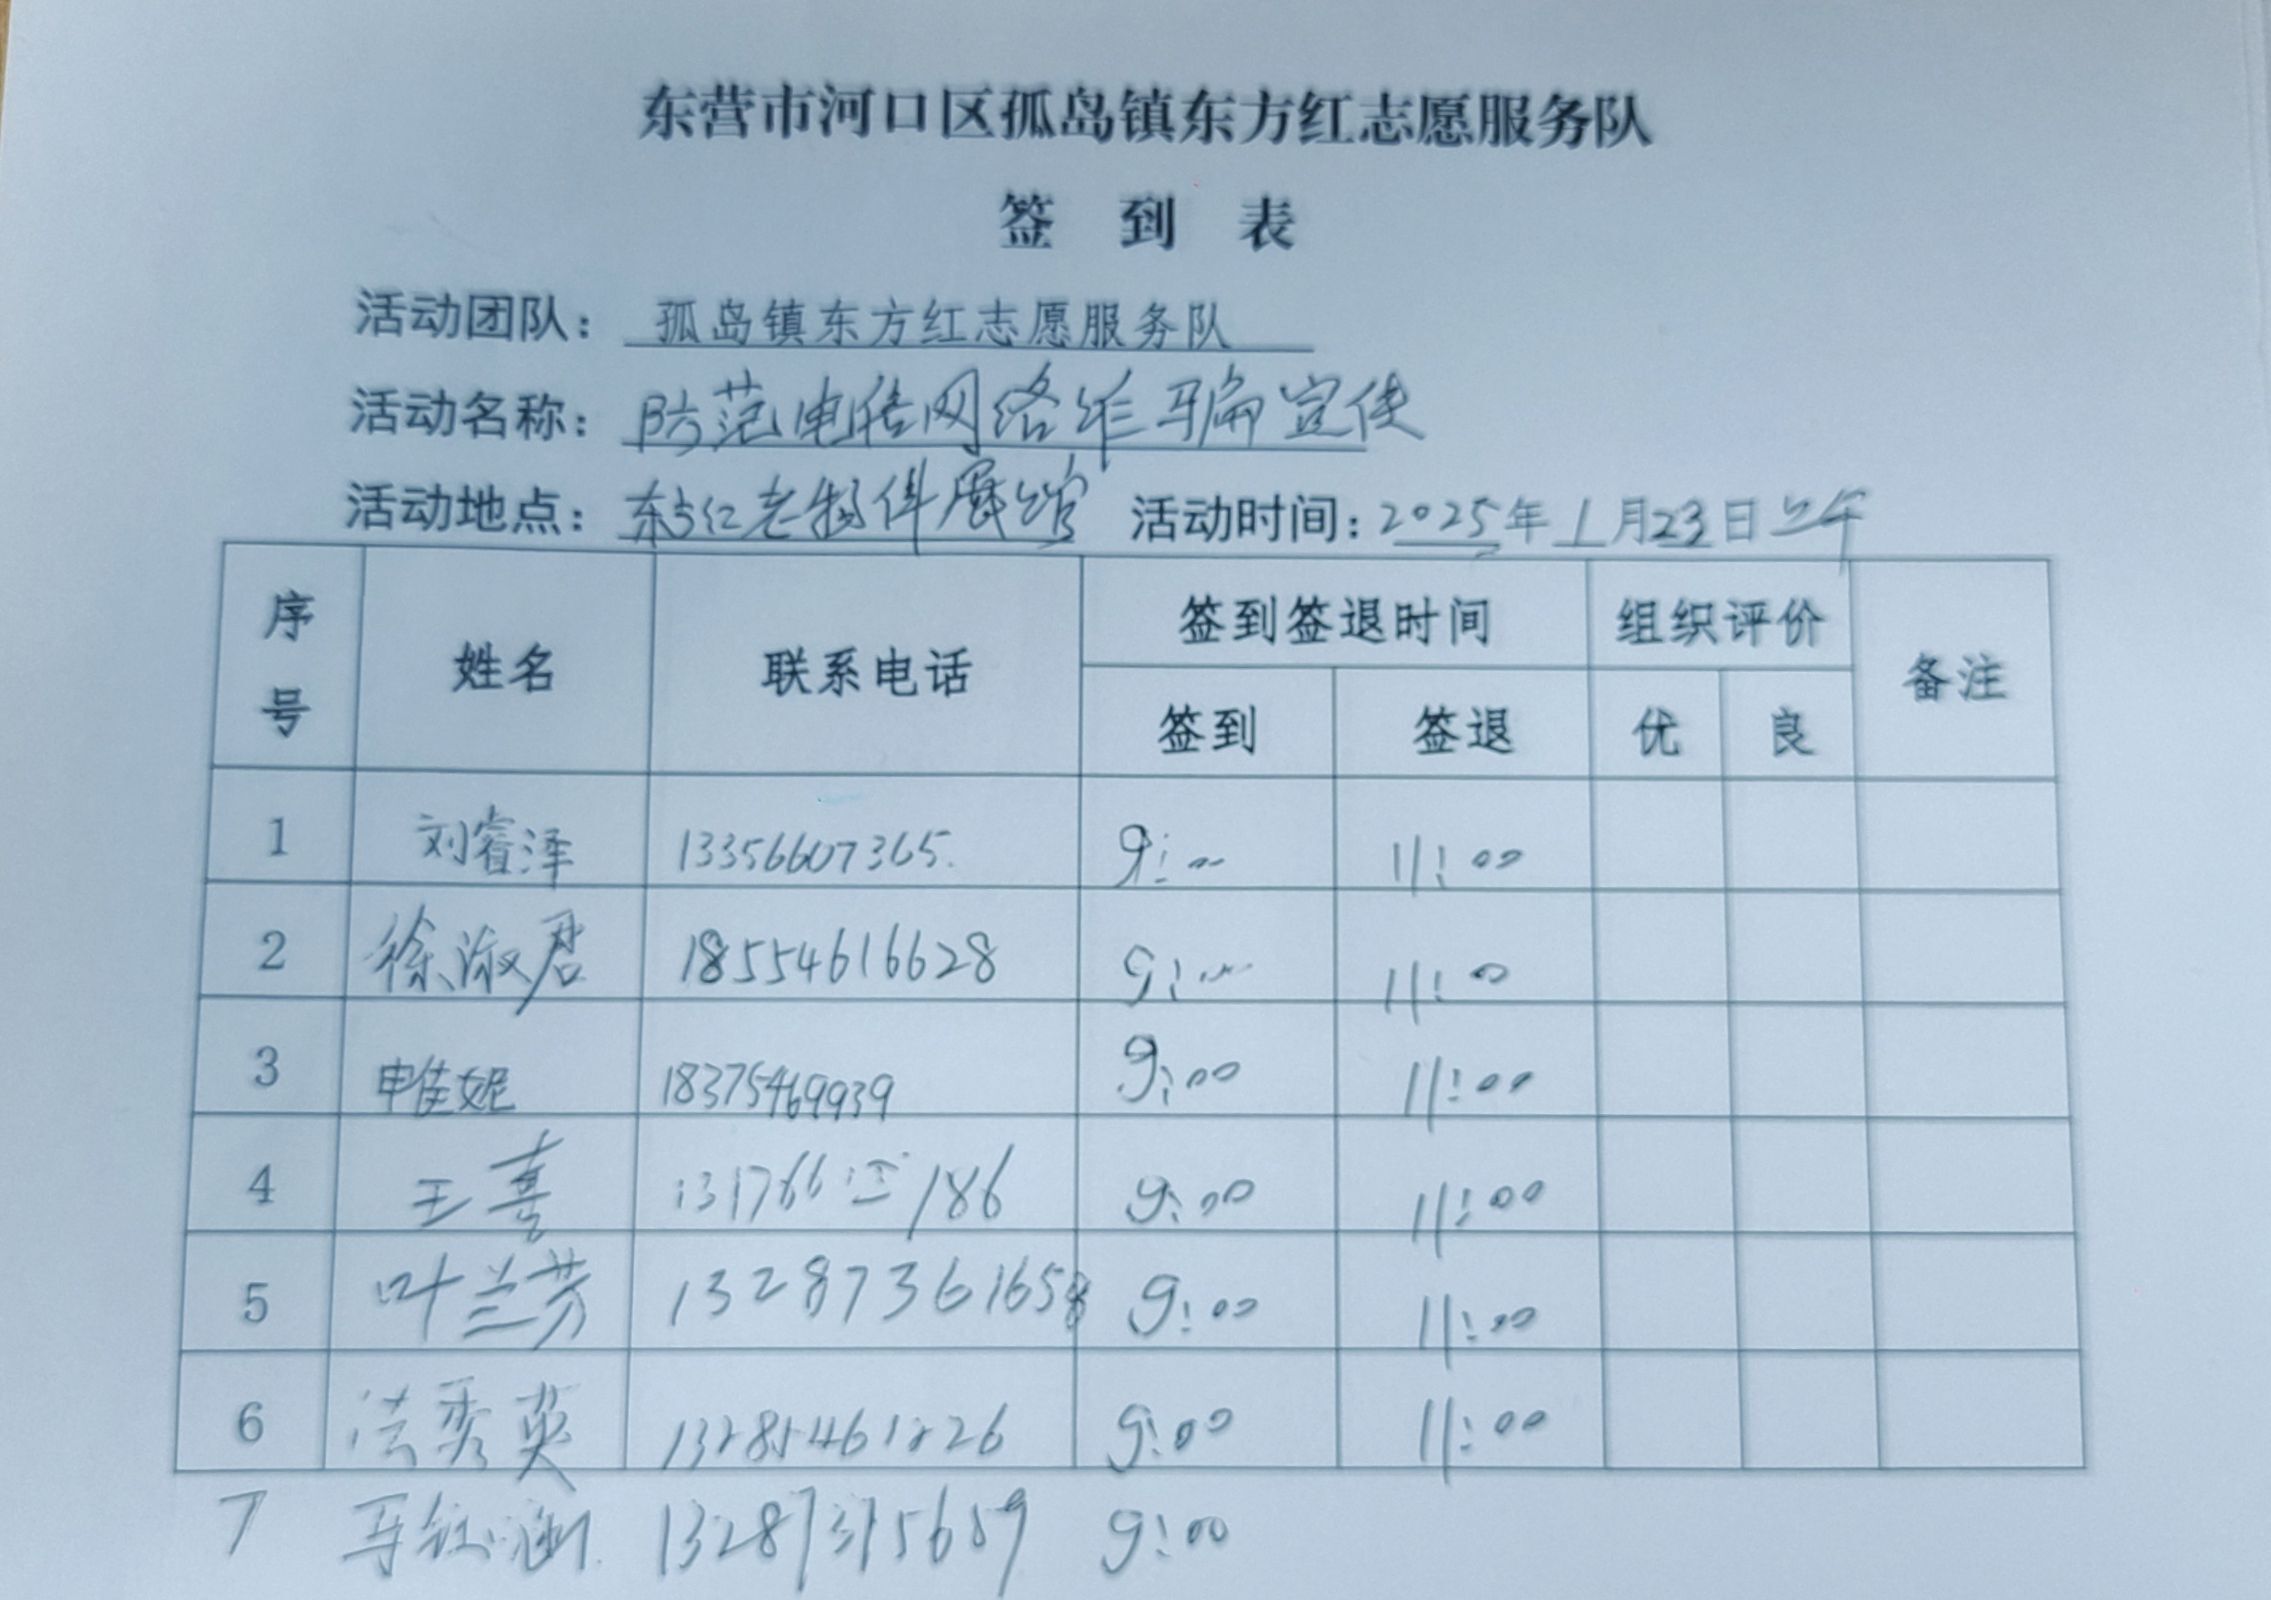 东营市河口区孤岛镇东方红志愿服务队
签 到 表
活动团队： 孤岛镇东方红志愿服务队
活动名称： 防范电信网络诈骗宣传
活动地点： 东方红老物件展馆 活动时间：2025年1月23日上午
序号 姓名 联系电话 签到签退时间 组织评价 备注
签到 签退 优 良
1 刘睿泽 13356607365 9:00 11:00
2 徐淑君 18554616628 9:00 11:0
3 申佳妮 18375469939 9:00 11:00
4 王喜 131766 186 9:00 11:00
5 叶兰芳 13287361658 9:00 11:00
6 秀英 13285461226 9:00 11:00
7 9:00